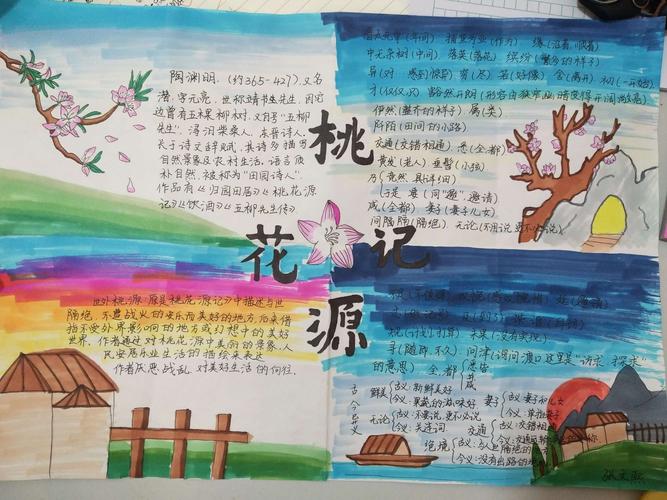 陶渊明，(约365-427)，又名
潜，字元亮，世称靖节先生，因宅
边曾有五棵柳树，又自号"五柳
先生"，浔阳柴桑人，东晋诗人，
长于诗文辞赋，其诗多描写
自然景象及农村生活，语言质
朴自然，被称为"田园诗人"。
作品有《归园田居》《桃花源
记》《饮酒》《五柳先生传》
中无杂树(中间) 落英(落花) 缤纷(繁多的样子)
异(对 感到惊异) 穷(尽) 若(好像) 舍(离开) 初(一开始)
才(仅仅,只) 豁然开朗(形容由狭窄幽暗变得开阔敞亮)
俨然(整齐的样子) 属(类)
阡陌(田间的小路)
交通(交错相通) 悉(全都)
黄发(老人) 垂髫(小孩)
乃
于是 要(同"邀"邀请)
咸(全都) 妻子(妻子儿女)
间隔(隔绝) 无论(不用说更不必说)
桃
花
源
记
世外桃源：源是桃花源记》中描述与世
隔绝，不遭战火的安乐而美好的地方，后来借
指不受外界影响的地方或幻想中的美好
世界，作者通过对桃花源中美丽的景象、人
民安居乐业生活的描绘来表达
作者厌恶战乱，对美好生活的向往。
规(计划打算) 未果(没有实现)
寻(随即,不久) 问津(询问渡口这里是"访求 探求"
的意思)
全都 悉 皆 咸
古今异义
鲜美 古义：新鲜美好
今义：果蔬的滋味好
妻子 古义：妻子和儿女
今义：单指妻子
无论 古义：不要说更不必说
今义：关连词
交通 古义：交错相通
绝境
今义：没有出路的